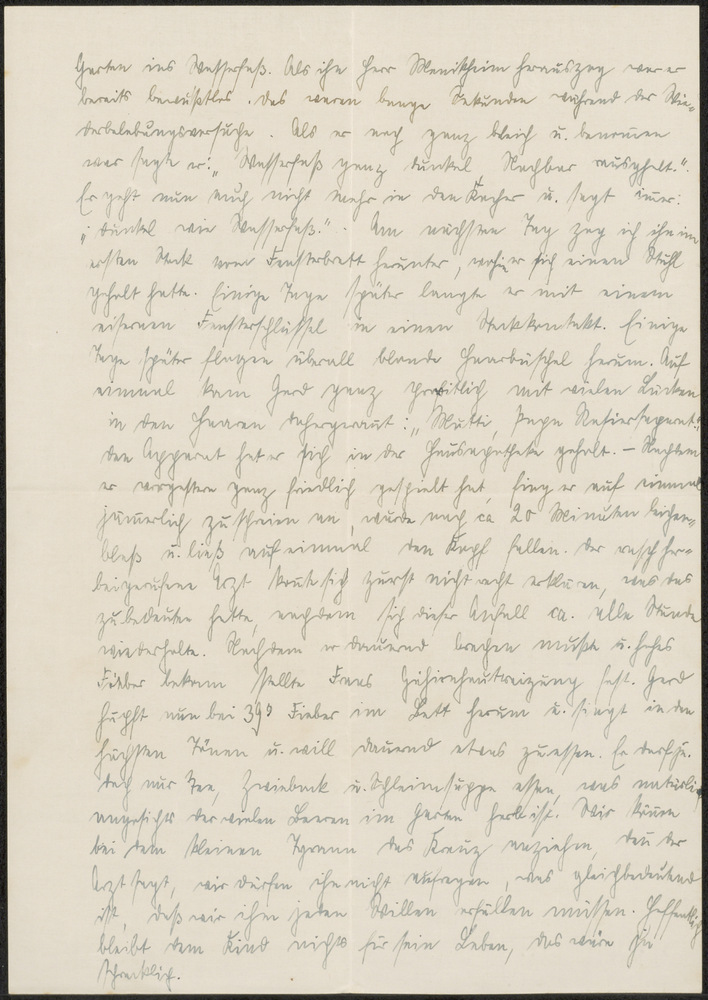 Garten ins Wasserfaß. Als ihn Herr Menikheim herauszog war er
bereits bewußtlos. Das waren bange Sekunden während der Wie-
derbelebungsversuche. Als er noch ganz bleich u. benommen
war sagte er: „Wasserfaß ganz dunkel Nachbar rausgeholt.“
Er geht nun auch nicht mehr in den u. sagt immer:
„dunkel wie Wasserfaß.“ Am nächsten Tag zog ich ihn im
ersten Stock vom Fensterbrett herunter, wohin er sich einen Stuhl
geholt hatte. Einige Tage später langte er mit einem
eisernen Fensterschlüssel in einen Steckkontakt. Einige
Tage später flogen überall blonde Haarbüschel herum. Auf
einmal kam Gerd ganz mit vielen Lücken
in den Haaren dahergerannt: „Mutti, Papa Rasierapparat“
den Apparat hat er sich in der Hausapotheke geholt. – Nachdem
er vorgestern ganz friedlich gespielt hat, fing er auf einmal
jämmerlich zu schreien an, wurde nach ca 20 Minuten leichen-
blaß u. ließ auf einmal den Kopf fallen. Der rasch her-
beigerufene Arzt konnte sich zuerst nicht recht erklären, was das
zu bedeuten hatte, nachdem sich dieser Anfall ca. alle Stunde
wiederholte. Nachdem er dauernd brechen mußte u. hohes
Fieber bekam stellte Gehirnhautreizung fest. Gerd
hupft nun bei 39° Fieber im Bett herum u. singt in den
höchsten Tönen u. will dauernd etwas zu essen. Er darf je-
doch nur Tee, Zwieback u. Schleimsuppe essen, was natürlich
angesichts der vielen Beeren im Garten herb ist. Wir können
bei dem kleinen Tyrann das Kreuz anziehen, denn der
Arzt sagt, wir dürfen ihn nicht aufregen, was gleichbedeutend
ist, daß wir ihm jeden Willen erfüllen müssen. Hoffentlich
bleibt dem Kind nichts für sein Leben, das wäre zu
schrecklich.